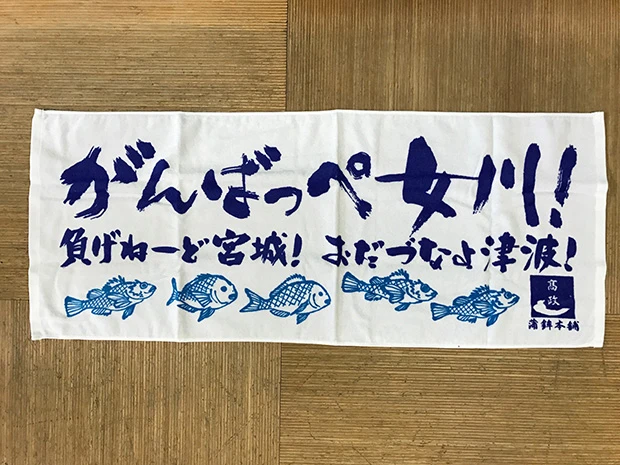 がんばっぺ女川!
負げねーど宮城! おだづなよ津波!
髙政
蒲鉾本舗